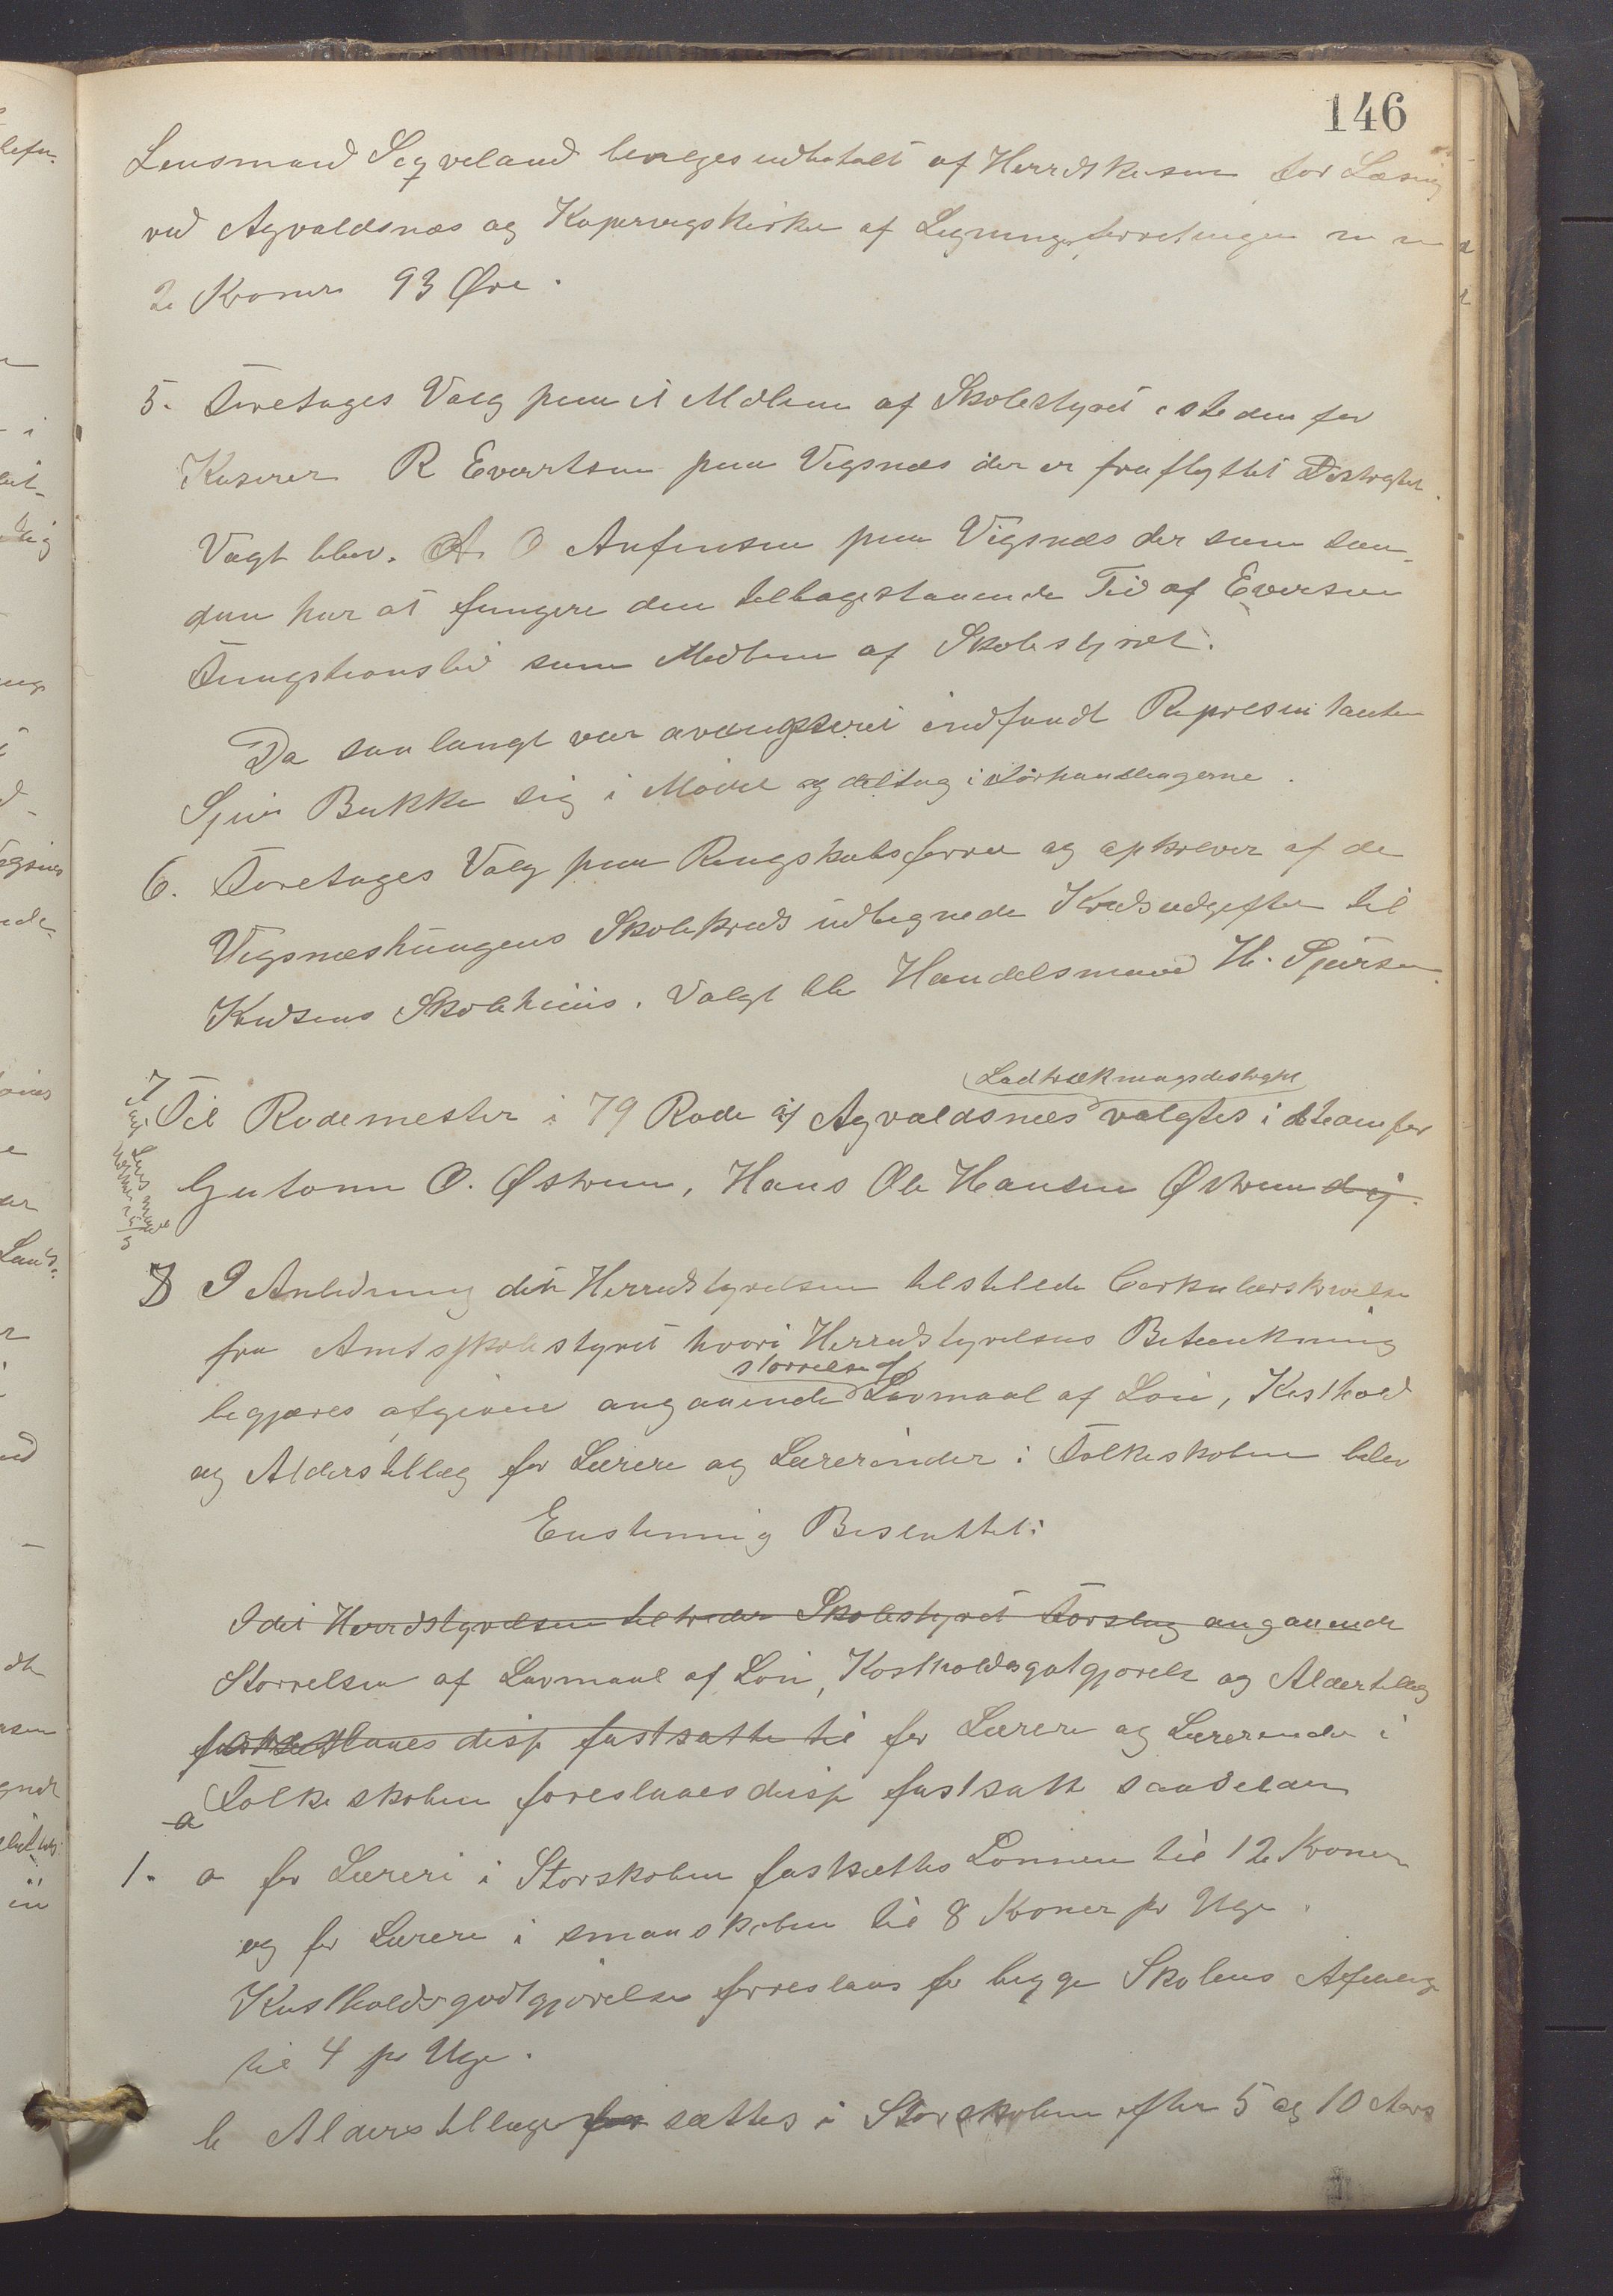 146
Lensmand Seqveland bevilges udbetalt af Herredskassen for Læsning
ved Agvaldsnæs og Kopervigs Kirker af Ligningsforretningen m m
2 Kroner 93 Øre.
5. Foretages Valg paa et Medlem af Skolestyret isteden for
Kaserer R Evertsen paa Vigsnæs der er fraflyttet Distrigtet.
Valgt blev. A. O Anfinsen paa Vigsnæs der som saa-
dan har at fungere den tilbagestaaende Tid af Eversen
Fungtionstid som Medlem af Skolestyret.
Da saa langt var avangseret indfandt Representanten
Spur Bukke sig i Mødet og deltog i Forhandlingerne.
6. Foretages Valg paa Rengskabsfører og opkrever af de
Vigsnæshaugens Skolekreds udlignede Kredsudgifter til
Kredsens Skolehuus. Valgt blev Handelsmand H. Sjursen.
Ladtrækningsdistrigt
7 Til Rodemester i 79 Rode af Agvaldsnæs valgtes i steden for
Gutorm O. Østrem, Hans Ole Hansen Østrem dij.
8 I Anledning det Herredstyrelsen tilstilede Cirkulærskrivelse
fra Amtsskolestyret hvori Herredstyrelsens Betænkning
størrelse af
begjæres afgiven angaaende Lavmaal af Løn, Kosthold
og Alderstillæg for Lærere og Lærerinder i Folkeskolen blev
Enstemmig Besluttet:
Idet Herredstyrelsen tiltreder Skolestyret Forslag angaaende
Størrelsen af Lavmaal af Løn, Kostholdsgotgjørelse og Alderstillæg
foreslaaes disp fastsatte til for Lærere og Lærerinder i
Folkeskolen foreslaaes disp fastsatt saadedan
a
1. a for Lærere i Storskolen fastsættes Lønnen til 12 Kroner
og for Lærere i smaaskolen til 8 Kroner pr Uge.
Kostholdsgodtgjørelse forreslaaes for begge Skolens Afdeling
til 4 pr Uge.
b Alderstillæge for sættes i Storskolen efter 5 og 10 Aars